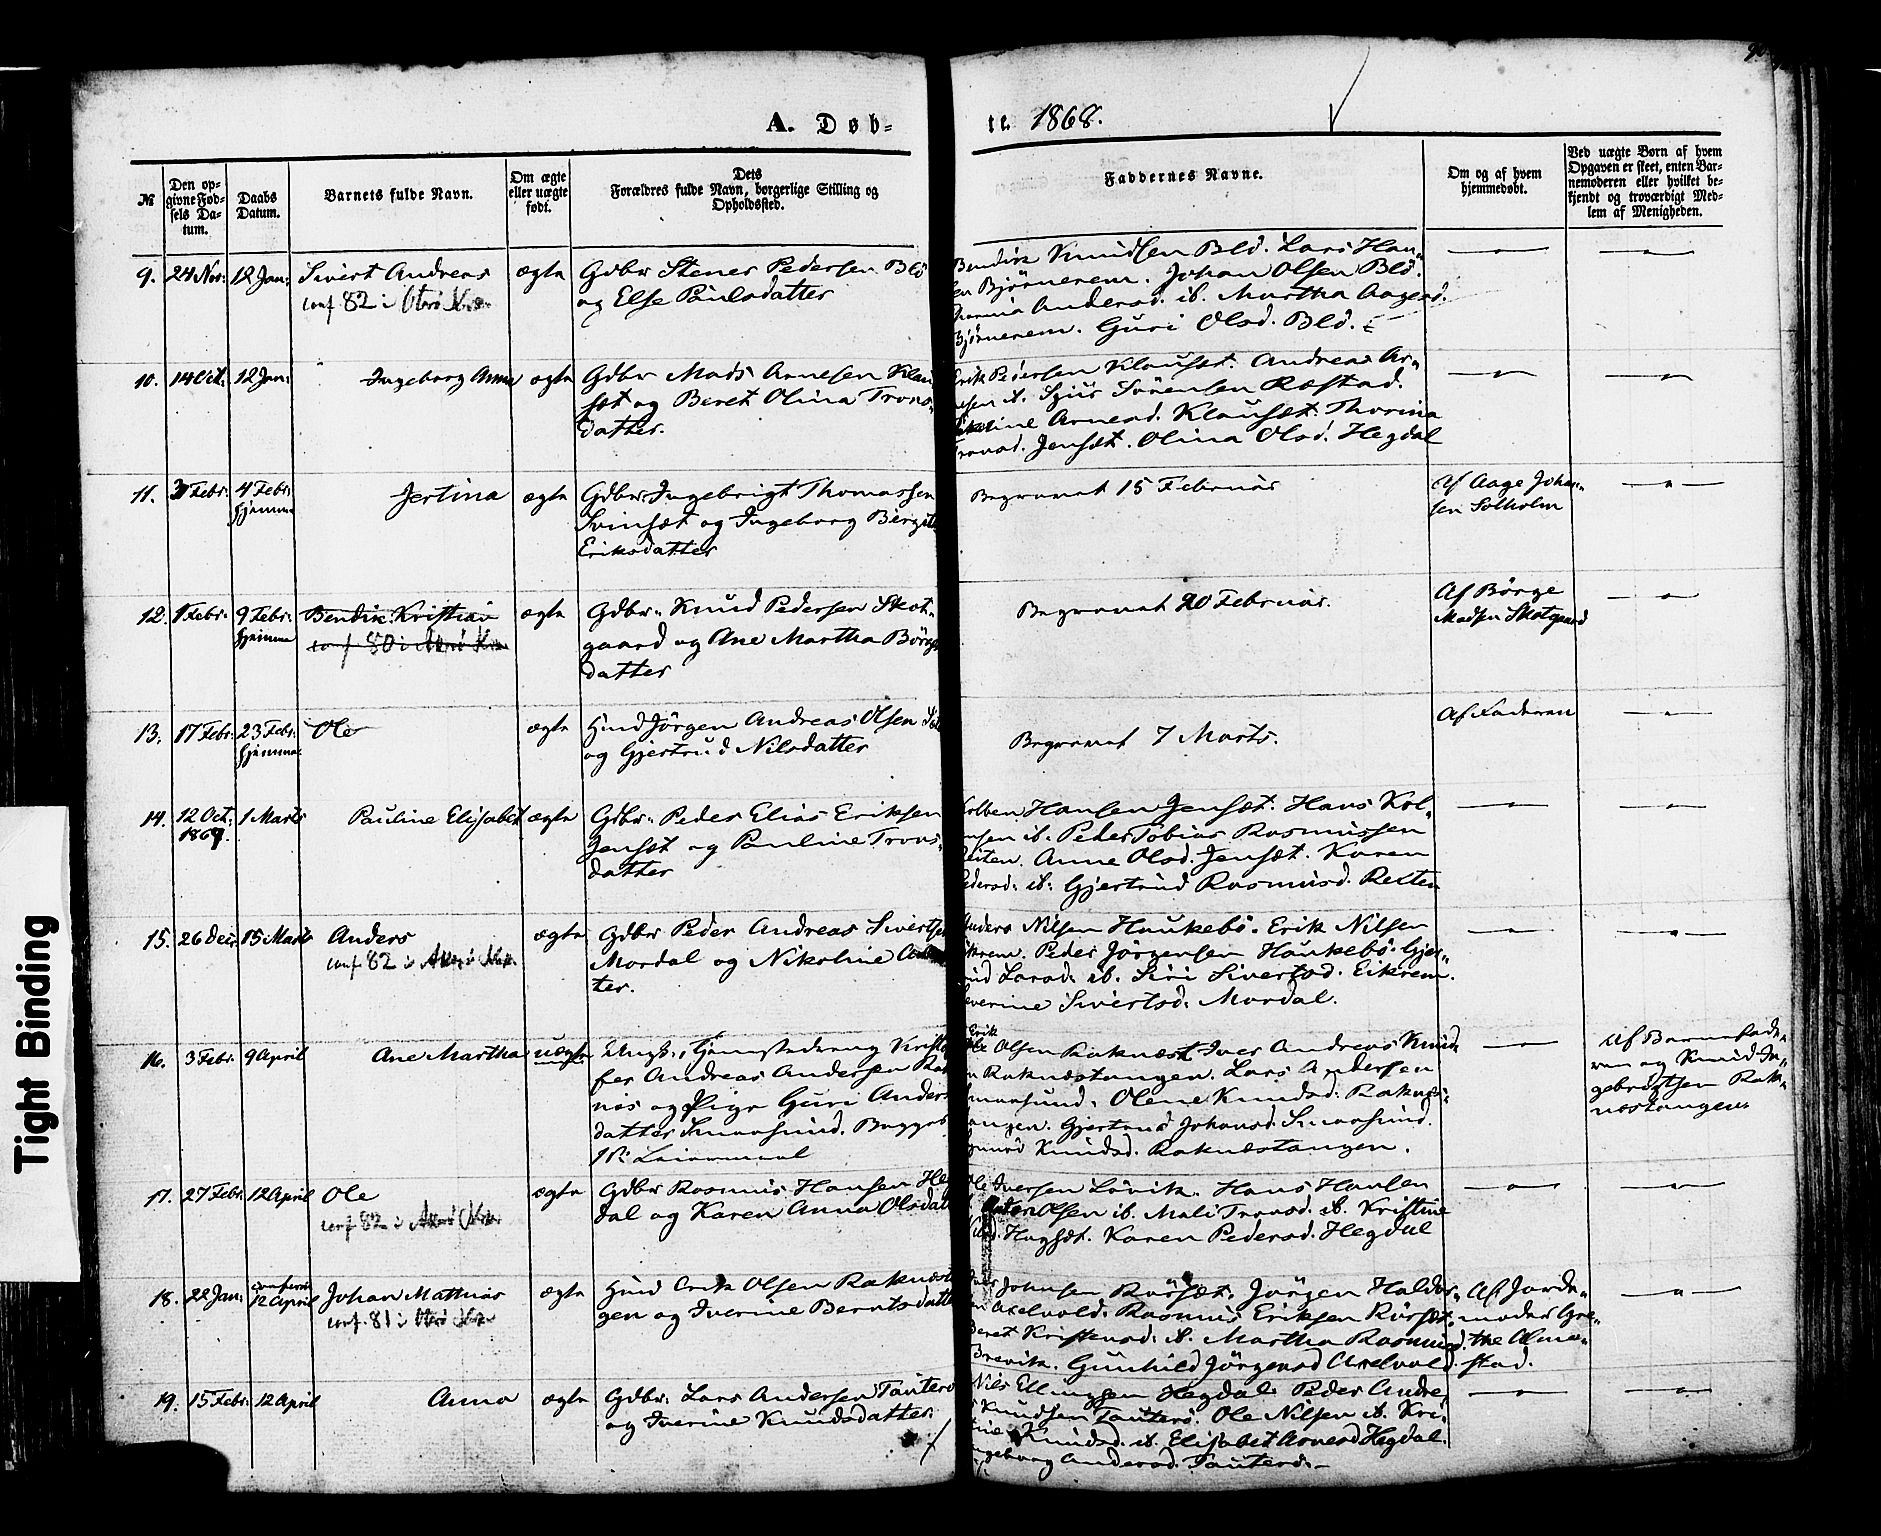 A. Døb-
te. 1868.
№
Den op-
givne Fød-
sels Da-
tum.
Daabs
Datum.
Barnets fulde Navn.
Om ægte
eller uægte
født.
Dets
Forældres fulde Navn, borgerlige Stilling og
Opholdssted.
Faddernes Navne.
Om og af hvem
hjemmedøbt.
Ved uægte Børn af hvem
Opgaven er skeet, enten Bar-
nemoderen eller hvilket be-
kjendt og troværdigt Med-
lem af Menigheden.
9. 24 Nov: 12 Jan: Sivert Andreas ægte
conf 82 i
Gdbr Stener Pedersen Blø
og Else Paulsdatter
Bendik Knudsen Blø. Lars Han-
sen Bjørnerem. Johan Olsen Blø.
Andersd. ib. Martha Aagesd.
Bjørnerem. Guri Olsd. Blø.
10. 14 Oct: 12 Jan: Ingeborg Anna ægte
Gdbr Mads Arnesen Klau
sæt og Beret Olina Trons-
datter.
Erik Pedersen Klausæt. Andreas Ar-
nesen ib. Sjur Sørensen Ræstad.
Arnesd. Klausæt. Thorina
Tronsd. Jensæt. Olina Olsd. Hegdal
11. 3 Febr: 4 Febr: Jertina ægte
hjemme
Gdbr Ingebrigt Thomassen
Svinsæt og Ingeborg Bergit
Eriksdatter
Begravet 15 Februar
Af Aage Johan-
sen Solholm
12. 1 Febr: 9 Febr: Bendik Kristian ægte
hjemme
conf 80 i
Gdbr. Knud Pedersen Skot-
gaard og Ane Martha Børge
datter
Begravet 20 Februar.
Af Børge
Madsen Skotgaard
13. 17 Febr: 23 Febr: Ole ægte
hjemme
Hmd Jørgen Andreas Olsen
og Gjertrud Nilsdatter
Begravet 7 Marts.
Af Faderen
14. 12 Oct: 1 Marts Pauline Elisabet ægte
1867.
Gdbr. Peder Elias Eriksen
Jensæt og Pauline Trons-
datter
Kolben Hansen Jensæt. Hans Kol-
bensen ib. Peder Tobias Rasmussen
Reiten. Anne Olsd. Jensæt. Karen
Pedersd. ib. Gjertrud Rasmusd. Reiten
15. 26 Decr 15 Marts Anders ægte
conf 82 i
Gdbr Peder Andreas Sivertsen
Mordal og Nikoline
ter.
Anders Nilsen Haukebø. Erik Nilsen
Eikrem. Peder Jørgensen Haukebø. Gjer-
trud Larsd. ib. Siri Sivertsd. Eikrem.
Severine Sivertsd. Mordal.
16. 3 Febr. 9 April Ane Martha uægte
Ungk. Kristo
fer Andreas Andersen Rak
næs og Pige Guri Anders
datter Smaasund. Begges
1ste Leiermaal
Erik
Ole Olsen Raknæst. Iver Andreas Knud
sen Raknæstangen. Lars Andersen
Smaasund. Olene Knudsd. Raknæs-
tangen. Gjertrud Johansd. Smaasund.
Knudsd. Raknæstangen.
Af Barnefade-
ren og Knud In-
gebrigtsen Rak-
næstangen
17. 27 Febr. 12 April Ole ægte
conf 82 i
Gdbr Rasmus Hansen Heg
dal og Karen Anna Olsdatt
Ole Iversen Løvik. Hans Hansen
Olsen ib. Mali Tronsd. ib. Kristine
Hagsæt. Karen Pedersd. Hegdal
18. 22 Jan: 12 April Johan Mathias ægte
conf 81 i
Hmd Erik Olsen Raknæst
gen og Iverine Berntsdatte
Johnsen Rørsæt. Jørgen Haldor-
sen Axelvold. Rasmus Eriksen Rørsæt.
Beret Kristensd. ib. Martha Rasmusd.
Brevik. Gunhild Jørgensd Axelvold
Af Jorde-
moder Gre-
the Alme-
stad.
19. 15 Febr. 12 April Anna ægte
Gdbr. Lars Andersen Tauterø
og Iverine Knudsdatter.
Nils Ellingsen Hegdal. Peder Andre
Knudsen Tauterø. Ole Nilsen ib. Kri-
stine Knudsd. ib. Elisabet Arnesd Hegdal.
Ingeborg Andersd. Tauterø.
Tight Binding